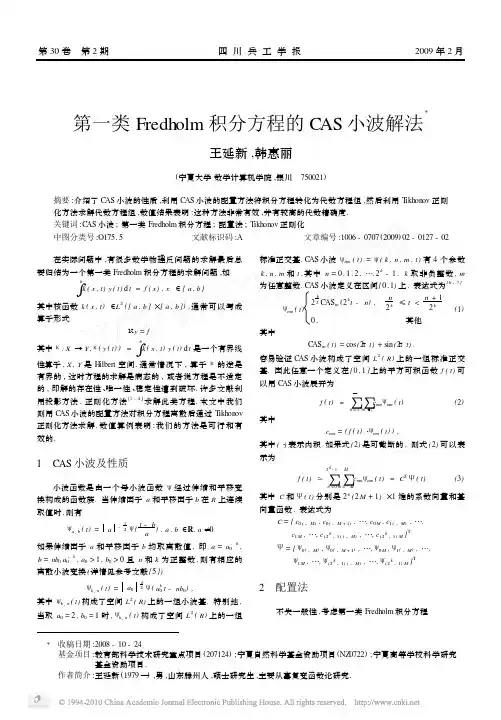 第 30 卷 第 2 期 四 川 兵 工 学 报 2009 年 2 月
第一类 Fredholm 积分方程的 CAS 小波解法*
王延新 ,韩惠丽
(宁夏大学 数学计算机学院 ,银川 750021)
摘要 :介绍了 CAS 小波的性质 ,利用 CAS 小波的配置方法将积分方程转化为代数方程组 ,然后利用 Tikhonov 正则
化方法求解代数方程组 ,数值结果表明 :这种方法非常有效 ,并有较高的代数精确度.
关键词 :CAS 小波 ; 第一类 Fredholm 积分方程 ; 配置法 ; Tikhonov 正则化
中图分类号 :O175. 5 文献标识码 :A 文章编号 :1006 - 0707(2009) 02 - 0127 - 02
在实际问题中 ,有很多数学物理反问题的求解最后总
要归结为一个第一类 Fredholm 积分方程的求解问题 ,如
∫k( x , t) y( t) dt = f( x) , x ∈[ a , b]
其中核函数 k( x , t) ∈L²([ a , b] ×[ a , b]) ,通常可以写成
算子形式
Ky = f
其中 K : X → Y , K( y( t) ) = ∫k( x , t) y( t) dt 是一个有界线
性算子 , X , Y 是 Hilbert 空间. 通常情况下 , 算子 K 的逆是
有界的 , 这时方程的求解是病态的 , 或者说方程是不适定
的 , 即解的存在性、唯一性、稳定性遭到破坏. 许多文献利
用投影方法、正则化方法[1-4] 求解此类方程. 本文中我们
则用 CAS 小波的配置方法对积分方程离散后通过 Tikhonov
正则化方法求解. 数值算例表明 :我们的方法是可行和有
效的.
1 CAS 小波及性质
小波函数是由一个母小波函数 Ψ 经过伸缩和平移变
换构成的函数族. 当伸缩因子 a 和平移因子 b 在 R 上连续
取值时 ,则有
Ψa , b( t) = | a |^(-1/2) Ψ((t - b)/a) , a , b ∈R , a ≠0
如果伸缩因子 a 和平移因子 b 均取离散值 , 即 a = a0^-k ,
b = nb0 a0^-k , a0 > 1 , b0 > 0 且 n 和 k 为正整数 , 则有相应的
离散小波变换(详情见参考文献[5])
Ψk , n( t) = | a0 |^(k/2) Ψ( a0^k t - nb0) ,
其中 Ψk , n( t) 构成了空间 L²( R) 上的一组小波基. 特别地 ,
当取 a0 = 2 , b0 = 1 时 , Ψk , n( t) 构成了空间 L²( R) 上的一组
标准正交基. CAS 小波 Ψnm( t) = Ψ( k , n , m , t) 有 4 个参数
k , n , m 和 t ,其中 n = 0 , 1 , 2 , …, 2^k - 1 , k 取非负整数 , m
为任意整数. CAS 小波定义在区间[0 , 1) 上 , 表达式为[6-7]
Ψnm( t) = { 2^(k/2) CASm(2^k t - n) , n/2^k ≤ t < (n + 1)/2^k
0 , 其他 (1)
其中
CASm( t) = cos(2π t) + sin(2π t) .
容易验证 CAS 小波构成了空间 L²( R) 上的一组标准正交
基. 因此任意一个定义在[0 , 1]上的平方可积函数 f( t) 可
以用 CAS 小波展开为
f( t) = ∑∑cnmΨnm( t) (2)
其中
cnm = (f( t) , Ψnm( t) ) ,
其中( ·) 表示内积. 如果式(2) 是可截断的 , 则式(2) 可以表
示为
f( t) ≃ ∑∑cnmΨnm( t) = C^T Ψ( t) (3)
其中 C 和 Ψ( t) 分别是 2^k(2M + 1) ×1 维的系数向量和基
向量函数 , 表达式为
2 配置法
不失一般性 ,考虑第一类 Fredholm 积分方程
* 收稿日期 :2008 - 10 - 24
基金项目 :教育部科学技术研究重点项目 (207124) ;宁夏自然科学基金资助项目 (NZ0722) ;宁夏高等学校科学研究
基金资助项目.
作者简介 :王延新 (1979 —) ,男 ,山东滕州人 ,硕士研究生 ,主要从事复变函数论研究.
© 1994-2010 China Academic Journal Electronic Publishing House. All rights reserved. http://www.cnki.net